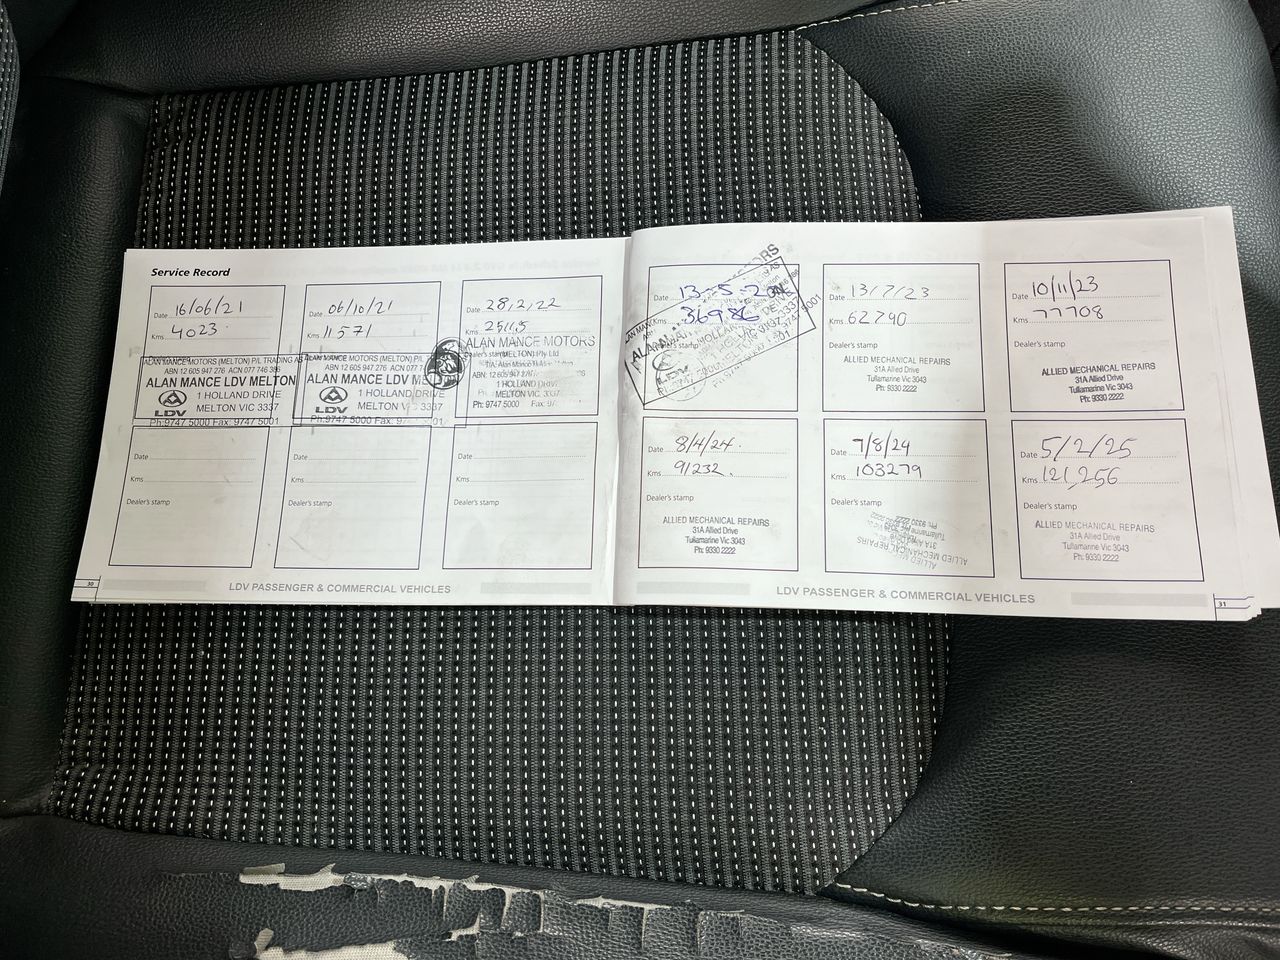 Service Record
Date 16/06/21
Kms 4023
ALAN MANCE MOTORS (MELTON) P/L TRADING AS
ABN 12 605 947 276 ACN 077 746 386
ALAN MANCE LDV MELTON
1 HOLLAND DRIVE
LDV
MELTON VIC 3337
Ph:9747 5000 Fax: 9747 5001
Date 06/10/21
Kms 11571
ALAN MANCE MOTORS (MELTON) P/L
ABN 12 605 947 276 ACN 077 7
ALAN MANCE LDV ME
1 HOLLAND DRIVE
LDV
MELTON VIC 3337
Ph:9747 5000 Fax: 97
Date 28,2,22
Kms 25115
ALAN MANCE MOTORS
Dealer's stamp (MELTON) Pty Ltd
1 HOLLAND DRIVE
MELTON VIC 3337
Ph: 9747 5000 Fax: 97
Date
Kms
Dealer's stamp
Date
Kms
Dealer's stamp
Date
Kms
Dealer's stamp
30
LDV PASSENGER & COMMERCIAL VEHICLES
Date 13-5-
Kms 36986
LDV
Date 13/7/23
Kms 62790
Dealer's stamp
ALLIED MECHANICAL REPAIRS
31A Allied Drive
Tullamarine Vic 3043
Ph: 9330 2222
Date 10/11/23
Kms 77708
Dealer's stamp
ALLIED MECHANICAL REPAIRS
31A Allied Drive
Tullamarine Vic 3043
Ph: 9330 2222
Date 8/4/24
Kms 91232
Dealer's stamp
ALLIED MECHANICAL REPAIRS
31A Allied Drive
Tullamarine Vic 3043
Ph: 9330 2222
Date 7/8/24
Kms 103279
Dealer's stamp
ALLIED MECHANICAL REPAIRS
31A Allied Drive
Tullamarine Vic 3043
Ph: 9330 2222
Date 5/2/25
Kms 121,256
Dealer's stamp
ALLIED MECHANICAL REPAIRS
31A Allied Drive
Tullamarine Vic 3043
Ph: 9330 2222
LDV PASSENGER & COMMERCIAL VEHICLES
31